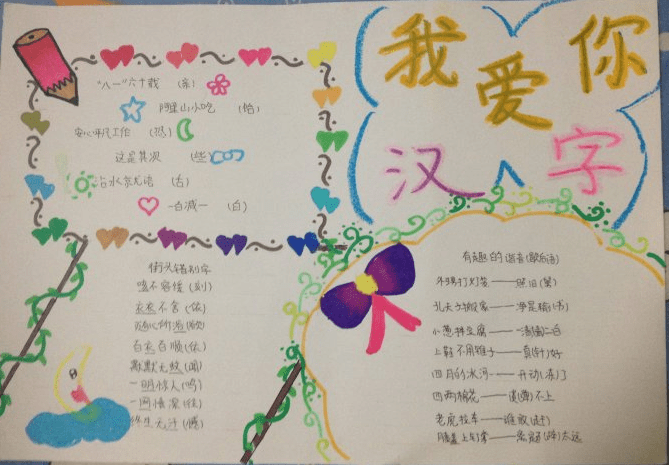 我爱你
汉字
"八一"六十载 (亲)
阿里山小吃 (怡)
安心平凡工作 (恐)
这是其次 (些)
活水东无语 (舌)
一百减一 (白)
街头错别字
刻不容缓 (刻)
衣衣不舍 (依)
百衣百顺 (依)
默默无蚊 (闻)
一明惊人 (鸣)
一网情深 (往)
有趣的谐音(歇后语)
外甥打灯笼——照旧(舅)
孔夫子搬家——净是输(书)
小葱拌豆腐——一清二白
上鞋不用锥子——真(针)好
四月的冰河——开动(冻)了
四两棉花——谈(弹)不上
老虎拉车——谁敢(赶)
膝盖上钉掌——离蹄(题)太远